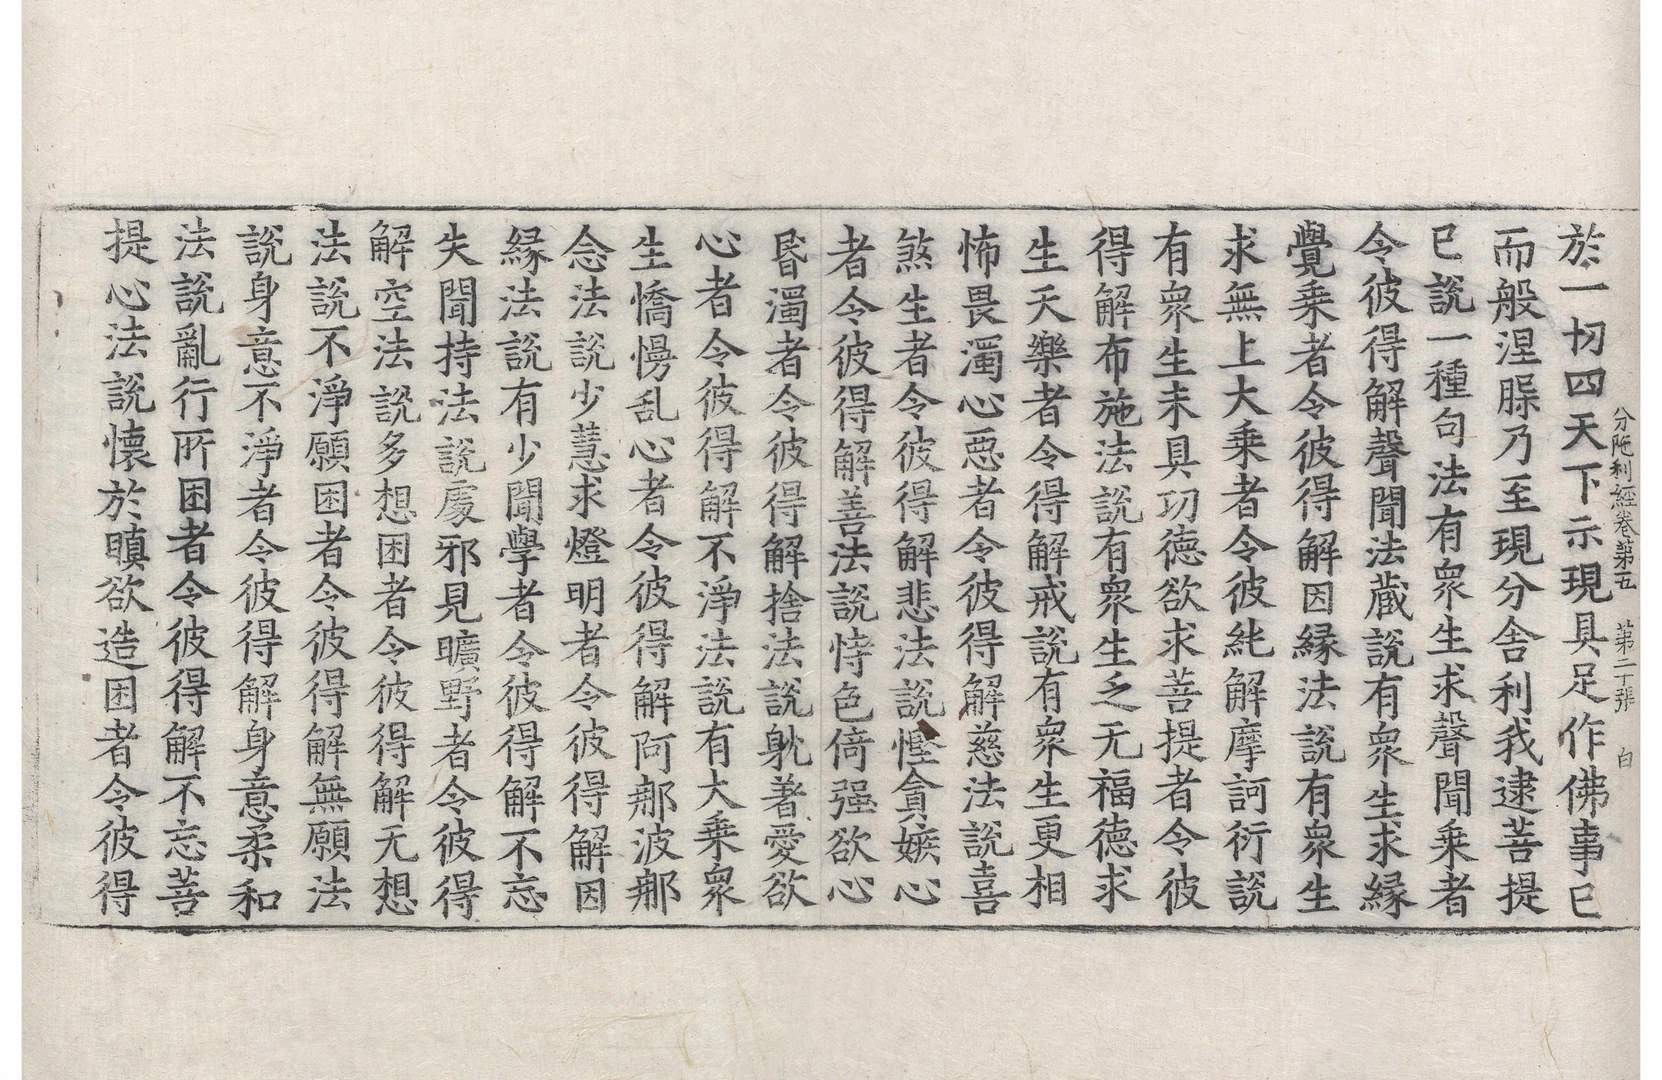 分陁利經卷第五　第二十張　白
於一切四天下示現具足作佛事已
而般涅槃乃至現分舍利我逮菩提
已說一種句法有衆生求聲聞乘者
令彼得解聲聞法蔵說有衆生求縁
覺乘者令彼得解因縁法說有衆生
求無上大乘者令彼純解摩訶衍說
有衆生未具功德欲求菩提者令彼
得解布施法說有衆生乏无福德求
生天樂者令得解戒說有衆生更相
怖畏濁心惡者令彼得解慈法說喜
煞生者令彼得解悲法說慳貪嫉心
者令彼得解善法說恃色倚强欲心
昬濁者令彼得解捨法說躭著愛欲
心者令彼得解不淨法說有大乘衆
生憍慢乱心者令彼得解阿那波那
念法說少慧求燈明者令彼得解因
縁法說有少聞學者令彼得解不忘
失聞持法說處邪見曠野者令彼得
解空法說多想困者令彼得解无想
法說不淨願困者令彼得解無願法
說身意不淨者令彼得解身意柔和
法說亂行所困者令彼得解不忘菩
提心法說懷於瞋欲造困者令彼得